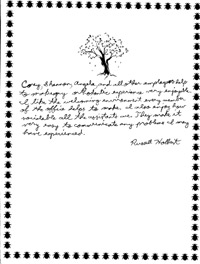 Corey, Shannon, Angela, and all other employees help
to make my orthodontic experience very enjoyable.
I like the welcoming environment every member
of the office helps to make. I also enjoy how
sociable all the assistants are. They make it
very easy to communicate any problems I may
have experienced.
Russell